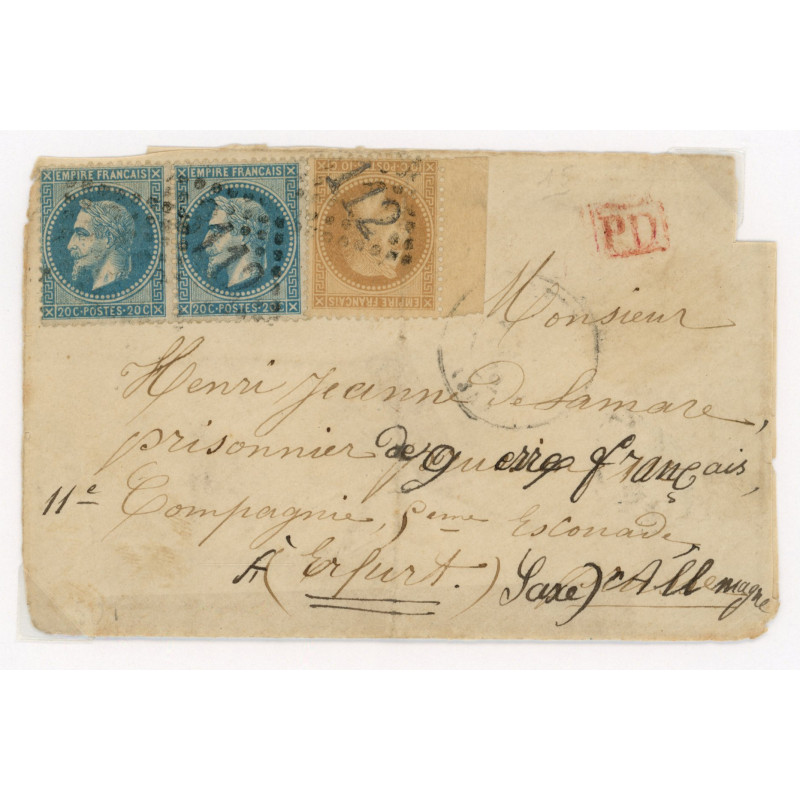 EMPIRE FRANÇAIS EMPIRE FRANÇAIS
20C·POSTES·20C 20C·POSTES·20C
10C·POSTES·10C
EMPIRE FRANÇAIS
112
112
P.D.
Monsieur
Henri Jeanne de Lamare,
prisonnier de guerre français,
11e Compagnie, 5eme Escouade
À (Erfurt.) Saxe) Allemagne